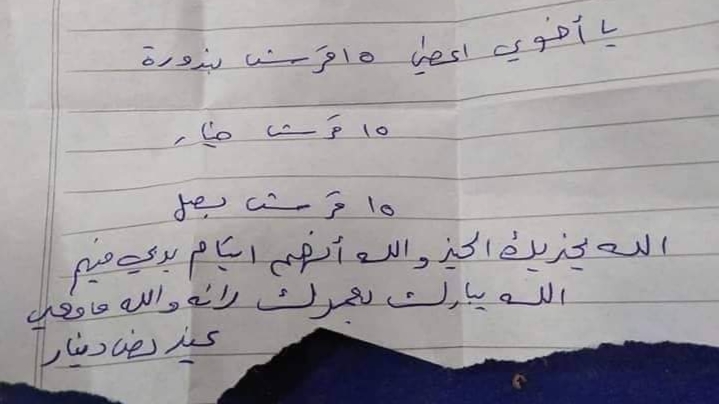 يا أخوي اعطيني ١٥ قرش بندورة
١٥ قرش خيار
١٥ قرش بصل
الله يجزيك الخير والله أنهم ايتام بدي فيهم
الله يبارك بعمرك لانه والله ما معي
غير نص دينار